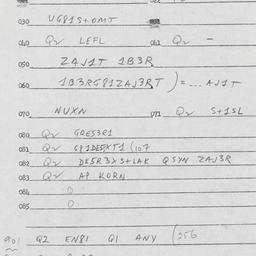 030 VG81S+OMT
040 Q2 LEFL 041 Q2 -
050 Z4J1T 1B3R
060 1B3RG81ZAJ3RT ) = ... AJ1T
070 NUXN 071 Q2 S+1SL
080 Q2 GQES3R1
081 Q2 (107
082 Q2 DE5R3X3+LAK QSYN ZAJ3R
083 Q2 AP KORN
084 0
085 0
901 Q2 EN81 Q1 ANY /256